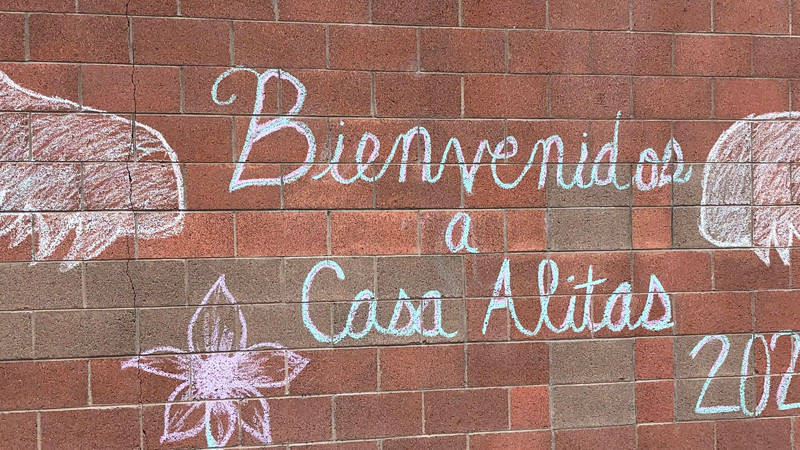 Bienvenidos
a
Casa Alitas
202